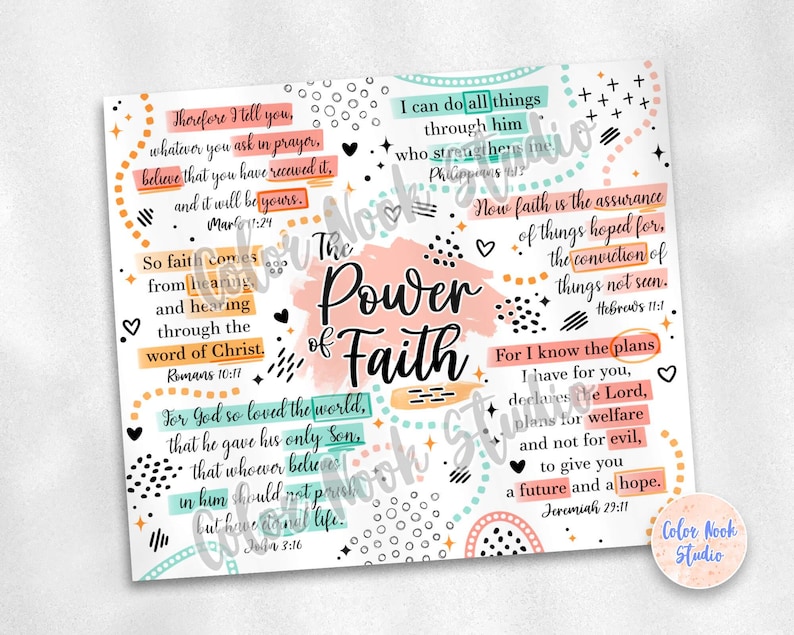 Therefore I tell you,
whatever you ask in prayer,
believe that you have received it,
and it will be yours.
Mark 11:24
I can do all things
through him
who strengthens me.
Philippians 4:13
So faith comes
from hearing,
and hearing
through the
word of Christ.
Romans 10:17
The
Power
of Faith
Now faith is the assurance
of things hoped for,
the conviction of
things not seen.
Hebrews 11:1
For God so loved the world,
that he gave his only Son,
that whoever believes
in him should not perish
but have eternal life.
John 3:16
For I know the plans
I have for you,
declares the Lord,
plans for welfare
and not for evil,
to give you
a future and a hope.
Jeremiah 29:11
Color Nook Studio
Color Nook Studio
Color Nook
Studio